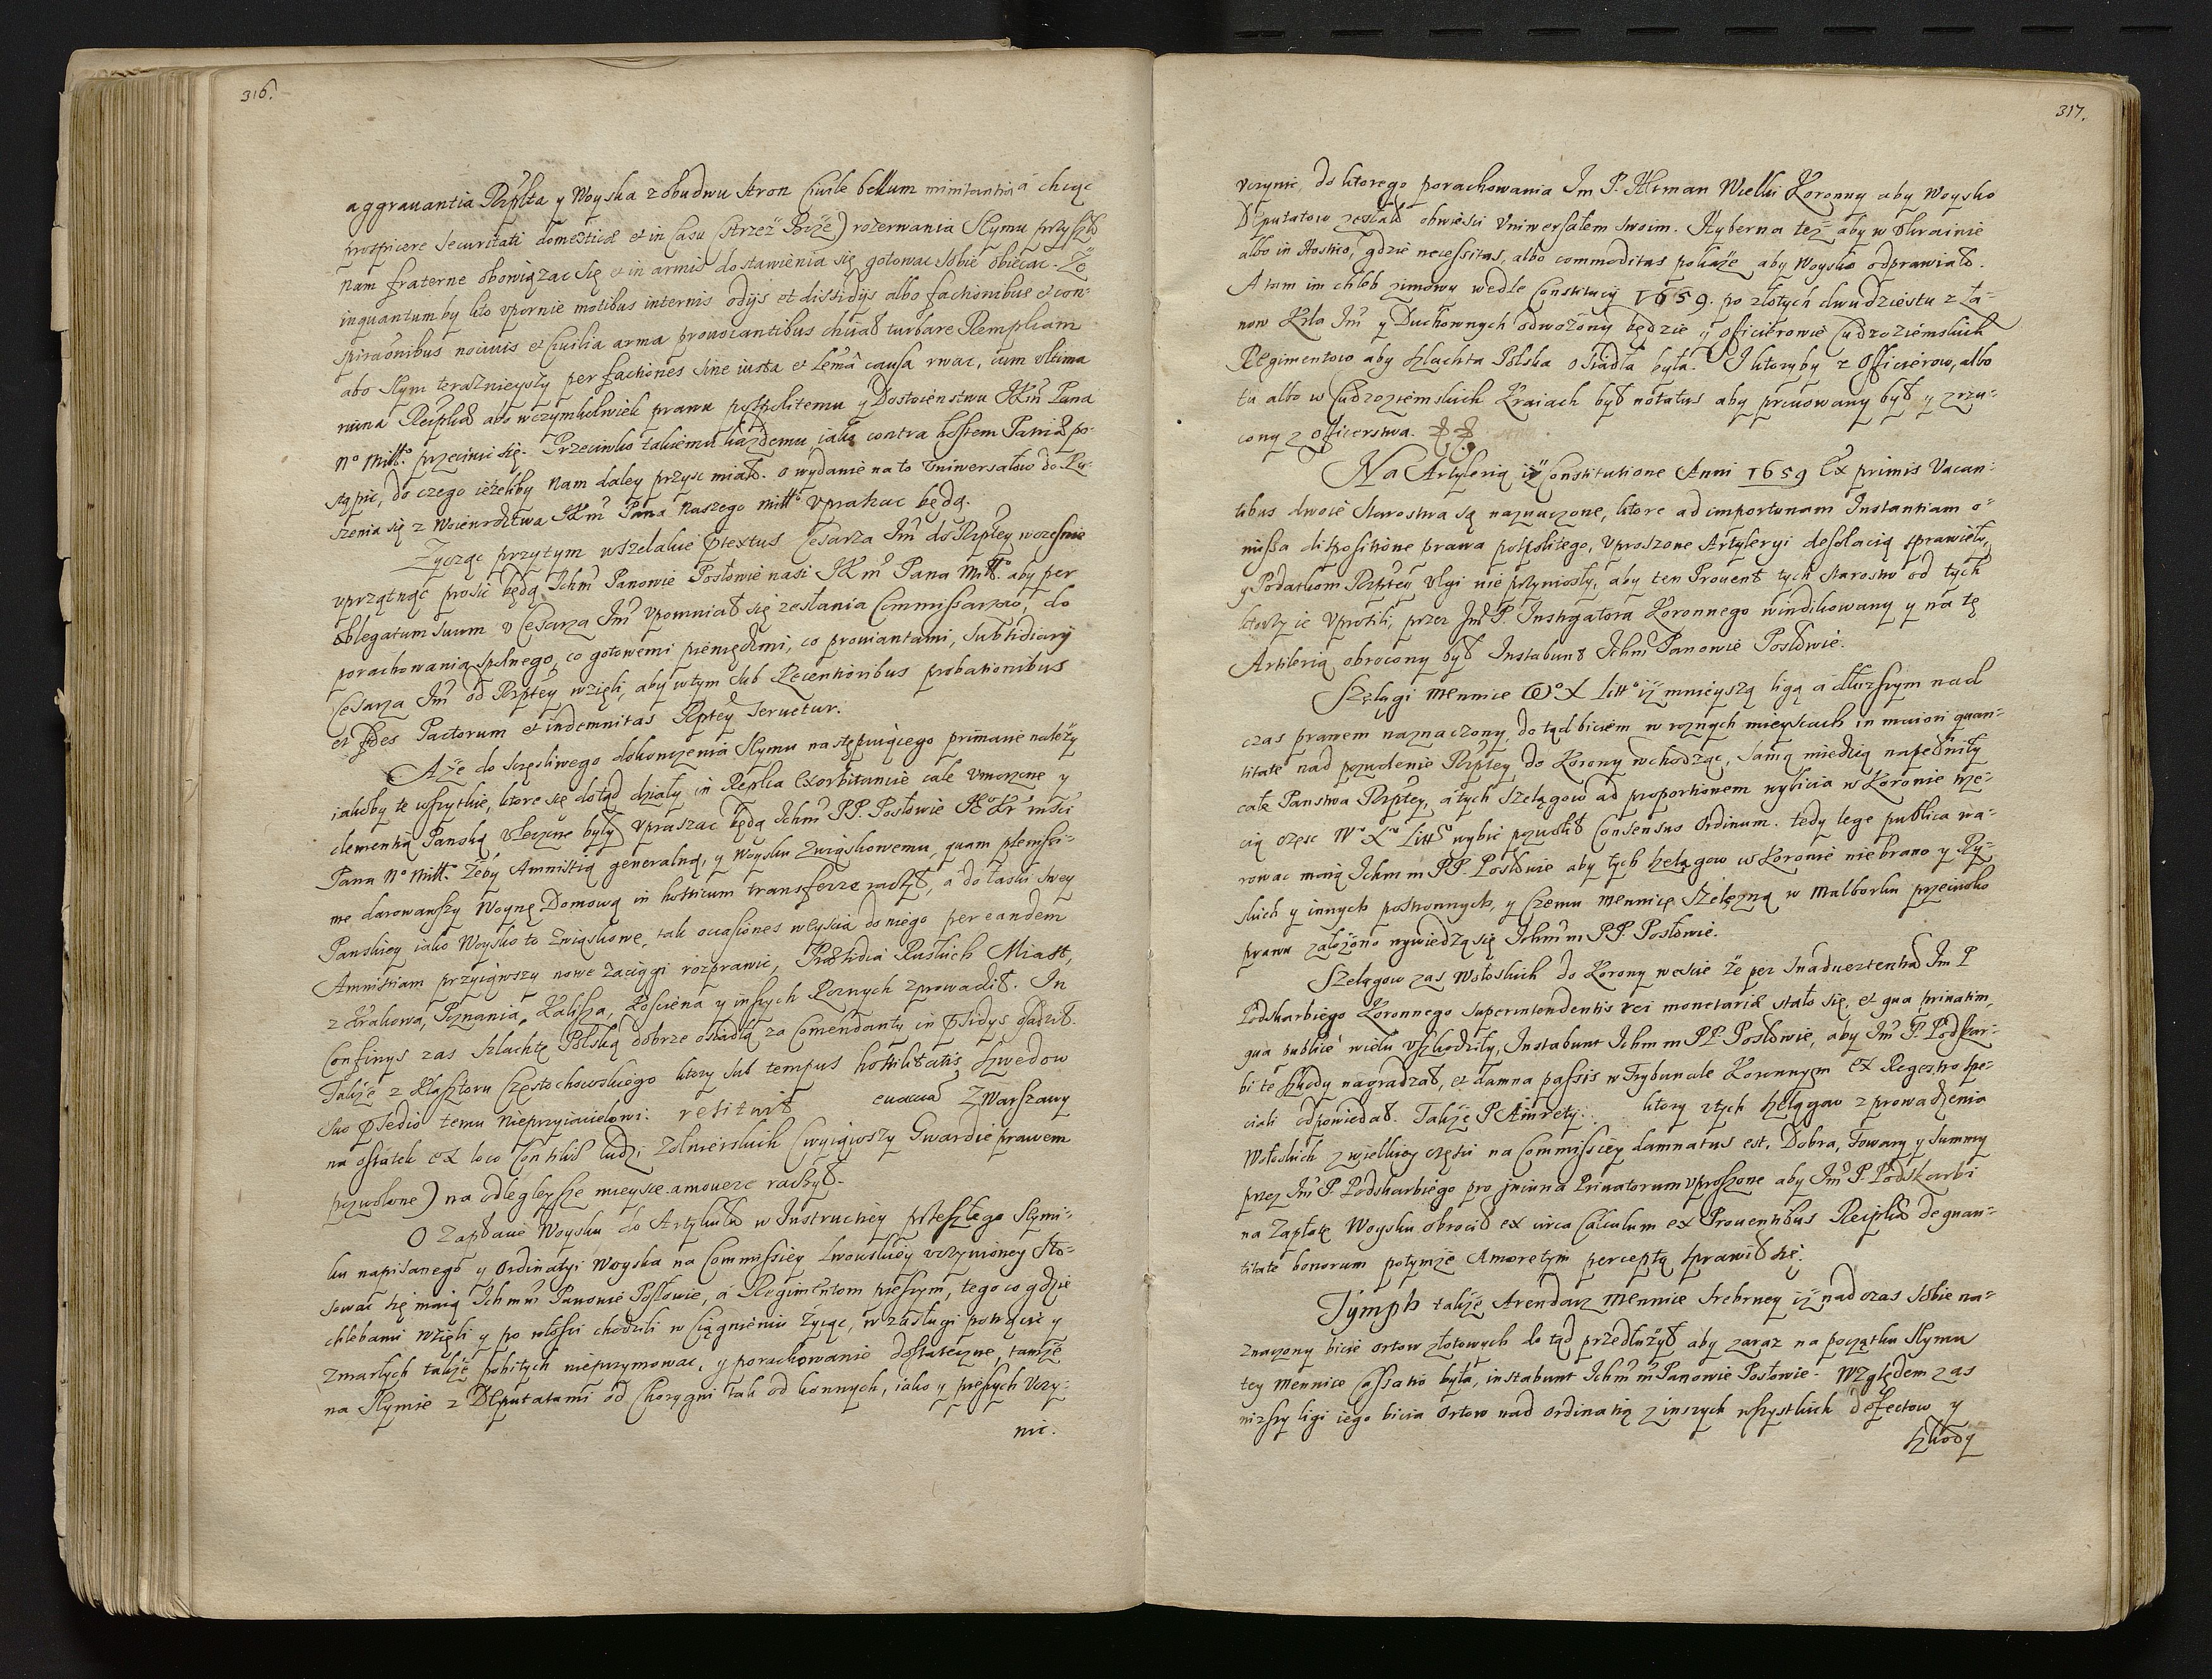 316.
aggrauantia Rzplta y Woyska z obudwu stron Ciuile bellum minitantia á chcąc
prospicere securitati domesticæ et in Casu (strzeż Boże) rozerwania Seymu przyszło
nam fraterne obowiązac się et in armis do stawienia się gotowac sobie obiecac. Że
inquantumby kto vpornie motibus internis odijs et dissidijs albo factionibus et con-
spirãonibus nociuis et Ciuilia arma prouocantibus chciał turbare Remplicam
abo Seym teraznieyszy per factiones sine iusta et Lẽma causa rwac, cum vltima
ruina Reiplicæ abo wczymkolwiek prawu pospolitemu y Dostoienstwu JKm Pana
No Mill̃o przeciwic się. Przeciwko takiemu każdemu iako contra hostem Patriæ po-
stąpic, do czego ieżeliby nam daley przysc miało. o wydanie na to Vniwersałow do Ru-
szenia się z Woiewodztwa JKm̃ Pana Naszego mill̃o vpraszac będą.
Zycząc przytym wszelakie prætextus Cesarza Jm̃ do Rzpltey wczesnie
vprzątnąc prosic będą Ichm̃ Panowie Posłowie nasi JKm̃ Pana Mill̃o aby per
oblegatum suum v Cesarza Jm̃ vpomniał się zesłania Commissarzow, do
porachowania spolnego, co gotowemi pieniędzmi, co prowiantami, subsidiarij
Cesarza Jm̃ od Rzptey wzięli, aby wtym sub Recentioribus probationibus
et fides Pactorum et indemnitas Rptey seruetur.
Aże do sczęsliwego dokonczenia Seymu następuiącego primarie należy
iakoby te wszytkie, ktore się dotąd działy in Replica Exorbitancie cale vmorzone y
clementią Panską vleczone były vpraszac będą Ichm̃ PP. Posłowie JKr̃ mosci
Pana No Mill̃o żeby Amnistią generalną, y Woysku Związkowemu, quam plenissi-
me darowawszy Woynę Domową in hosticum transferre raczył, a do łaski swey
Panskiey iako Woysko to Związkowe, tak occasiones wescia do niego per eandem
Amnistiam przyiąwszy nowe zaciągi rozprawic, Præsidia Ruskich Miast,
z Krakowa, Poznania, Kalisza, Kosciena y inszych Rożnych zprowadził. In
Confinys zas szlachtę Polską dobrze osiadłą za Comendanty in Præsidys osadził.
Także z Klasztoru Częstochowskiego ktory sub tempus hostilitatis Szwedow
suo præsidio temu nieprzyiacielowi. restitit euacua z Warszawy
na ostatek ex loco Consilii ludzi Zolnierskich (wyiąwszy Gwardie prawem
pozwolone) na odlegleysze mieysce amouere raczył.
O Zapłacie Woysku do Artykułu w Instructiey przeszłego Seymi-
ku napisanego y Ordinatyi Woyska na Commissiey Lwowskiey vczynioney sto-
sować się maią Ichmm̃ Panowie Posłowie, á Regimentom pieszym, tego co gdzie
chlebami wzięli y po włosci chodzili w Ciągnieniu życiąc, w zasługi potrącic y
zmarłych także pobitych nieprzymowac, y porachowanie dostateczne, tamże
na Seymie z Deputatami od Chorągwi tak od konnych, iako y pieszych Vczy-
nic.
317.
vczynic, do ktorego porachowania Jm P. Hetman Wielki Koronny aby Woysko
Deputatow zesłało obwiesci Vniwersałem swoim. Hyberna też aby w Vkrainie
albo in Hostico, gdzie necessitas, albo commoditas pokaże, aby Woysko odprawiało.
A tum im chleb zimowy wedle Constitucij 1659. po złotych dwudziestu z Ła-
now Krla Jm̃ y Duchownych odwożony będzie y Officierowie Cudzoziemskich
Regimentow aby szlachta Polska osiadła była. J ktoryby z Officierow, albo
tu albo w Cudzoziemskich Kraiach był notatus aby priuowany był y zrzu-
cony z Officerstwa.
Na Artyleria iż Constitutione Anni 1659 Ex primis Vacan-
tibus dwoie starostwa są naznaczone, ktore ad importunam Instantiam o-
missa dispositione prawa pospolitego, vproszone Artyleryi desolacią sprawieło,
y Podatkom Rzptey vlgi nie przyniosły, aby ten Prouent tych starostw od tych
ktorzy ie vprosili, przez Jm̃ P. Instigatora Koronnego windikowany y na tę
Artilerią obrocony był Instabunt Ichm̃ Panowie Posłowie.
Szelągi mennice W. X Litt̃o iż mnieyszą ligą á dłuzszym nad
czas prawem naznaczony, do tąd biciem w roznych mieyscach in maiori quan-
titate nad pozwolenie Rzptey do Korony wchodząc, samą miedzią napełniły
całe Panstwa Rzptey, á tych szelągow ad proportionem wybicia w Koronie trze-
cią częsc W. X. Litt̃o wybic pozwolił Consensus Ordinum. tedy lege publica wa-
rowac maią Ichm m PP. Posłowie aby tych szelągow w Koronie niebrano y Ry-
skich y innych postronnych, y czemu mennicę Szelężną w Malborku przeciwko
prawu założono wywiedzą się Ichm̃ m PP. Posłowie.
Szelągow zas Wołoskich do Korony wescie że per Inaduertentiã Jm P
Podskarbiego Koronnego superintendentis rei monetariæ stało się, et qua priuatim,
qua publicè wielu vszkodziły, Instabunt Ichm m PP. Posłowie, aby Jm̃ P. Podskar-
bi te szkody nagradzał, et damna passis w Trybunale Koronnym ex Regestro spe-
ciali odpowiedał. Także P Amrety: ktory z tych szelągow z prowadzenia
Wołoskich z wielkiey częsci na Commissiey damnatus est. Dobra, Towary y summy
przez Jm̃ P. Podskarbiego pro iniuria Priuatorum vproszone aby Jm̃ P. Podskarbi
na Zapłatę Woysku obrocił ex circa Calculum ex Prouentibus Reiplicæ de quan-
titate bonorum potymże Amoretym perceptą sprawił się.
Tymph także Arendarz mennice srebrney iż nad czas sobie na-
znaczony bicie ortow złotowych do tąd przedłużył aby zaraz na początku Seymu
tey mennice Cassatio była, instabunt Ichm̃ m Panowie Posłowie. Względem zas
nizszy ligi iego bicia Ortow nad ordinatią z inszych wszystkich defectow y
szkody